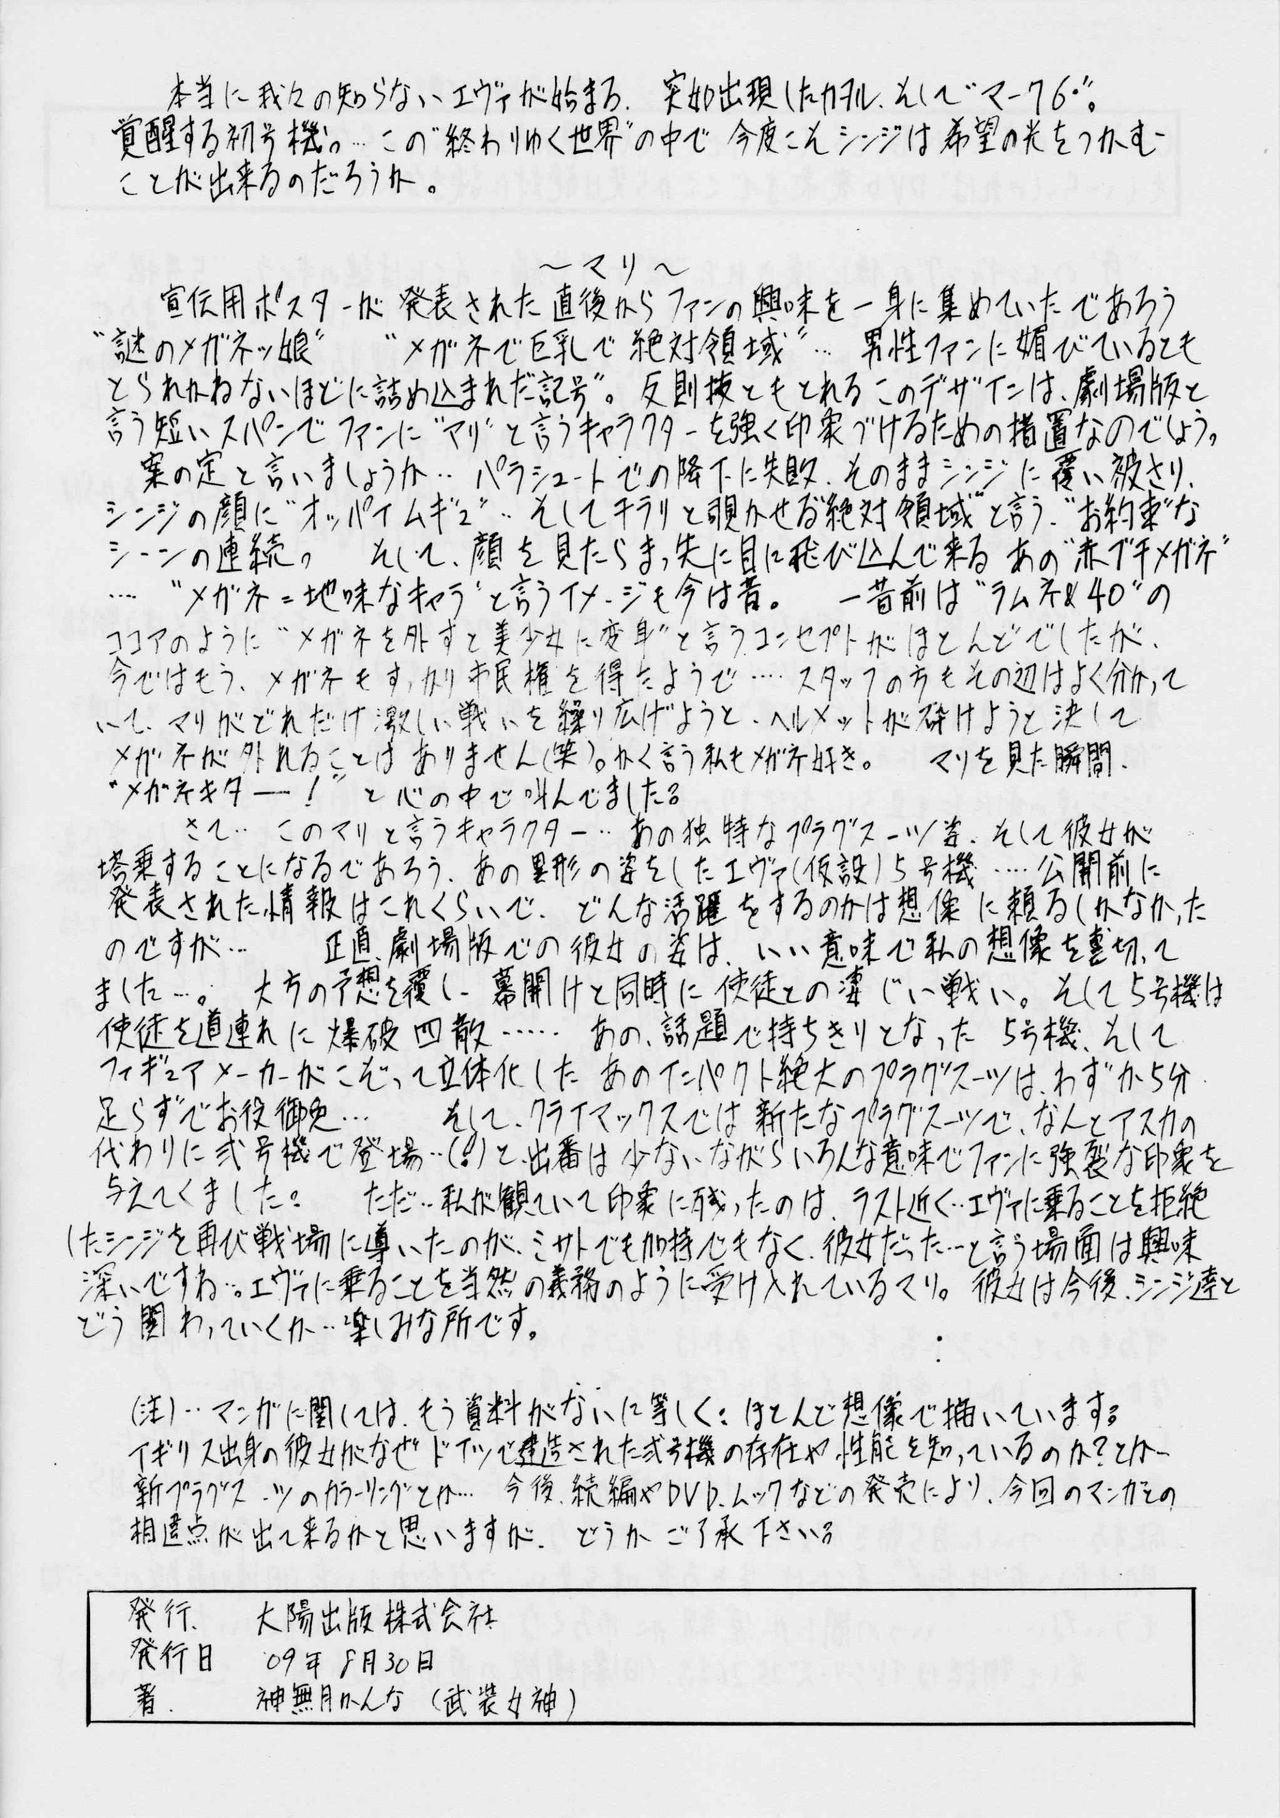 本当に我々の知らないエヴァが始まる、突如出現したカヲル、そして"マーク6"。
覚醒する初号機。…この"終わりゆく世界"の中で今度こそシンジは希望の光をつかむ
ことが出来るのだろうか。
～マリ～
宣伝用ポスターが発表された直後からファンの興味を一身に集めていたであろう
"謎のメガネッ娘" "メガネで巨乳で絶対領域"… 男性ファンに媚びているとも
とられかねないほどに詰め込まれた"記号"。反則技ともとれるこのデザインは、劇場版と
言う短いスパンでファンに"マリ"と言うキャラクターを強く印象づけるための措置なのでしょう。
案の定と言いましょうか…パラシュートでの降下に失敗、そのままシンジに覆い被さり、
シンジの顔に"オッパイムギュ"…そしてチラリと覗かせる"絶対領域"と言う、"お約束"な
シーンの連続。 そして、顔を見たらまっ先に目に飛び込んで来るあの"赤ブチメガネ"
… "メガネ=地味なキャラ"と言うイメージも今は昔。 一昔前は"ラムネ&40"の
ココアのように"メガネを外すと美少女に変身"と言うコンセプトがほとんどでしたが、
今ではもう、メガネもすっかり市民権を得たようで……スタッフの方もその辺はよく分かって
いて、マリがどれだけ激しい戦いを繰り広げようと、ヘルメットが砕けようと決して
メガネが外れることはありません(笑)。かく言う私もメガネ好き。 マリを見た瞬間、
"メガネキターー!"と心の中で叫んでました。
さて…このマリと言うキャラクター…あの独特なプラグスーツ姿、そして彼女が
塔乗することになるであろう、あの異形の姿をしたエヴァ(仮設)5号機……公開前に
発表された情報はこれくらいで、どんな活躍をするのかは想像に頼るしかなかった
のですが… 正直、劇場版での彼女の姿は、いい意味で私の想像を裏切って
ました…。 大方の予想を覆し、幕開けと同時に使徒との凄じい戦い。そして5号機は
使徒を道連れに爆破四散…… あの、話題で持ちきりとなった5号機、そして
フィギュアメーカーがこぞって立体化したあのインパクト絶大のプラグスーツは、わずか5分
足らずでお役御免… そして、クライマックスでは新たなプラグスーツで、なんとアスカの
代わりに弐号機で登場…(!)と、出番は少ないながらいろんな意味でファンに強裂な印象を
与えてくました。 ただ…私が観ていて印象に残ったのは、ラスト近く…エヴァに乗ることを拒絶
したシンジを再び戦場に導いたのが、ミサトでも加持でもなく、彼女だった…と言う場面は興味
深いですね…。エヴァに乗ることを当然の義務のように受け入れているマリ。彼女は今後、シンジ達と
どう関わっていくか…楽しみな所です。
(注)…マンガに関しては、もう資料がないに等しく、ほとんど想像で描いています。
イギリス出身の彼女がなぜドイツで建造された弐号機の存在や性能を知っているのか?とか
新プラグスーツのカラーリングとか… 今後、続編やDVD、ムックなどの発売により、今回のマンガとの
相違点が出て来るかと思いますが、どうかご了承下さい。
発行、 大陽出版株式会社
発行日 '09年8月30日
著、 神無月かんな(武装女神)